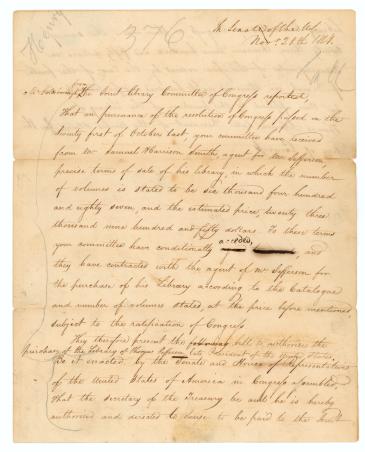 Henry
376
In Senate of the U.S.
Novr 28th 1814.
The Joint Library Committee of Congress reported,
That in pursuance of the resolution of Congress passed on the
twenty first of October last, your committee have received
from Mr Samuel Harrison Smith, agent for Mr Jefferson,
precise terms of sale of his library, in which the number
of volumes is stated to be six thousand four hundred
and eighty seven, and the estimated price, twenty three
thousand nine hundred and fifty dollars. To these terms
your committee have conditionally acceded, and
they have contracted with the agent of Mr Jefferson for
the purchase of his Library according to the Catalogue
and number of volumes stated, at the price before mentioned
subject to the ratification of Congress
They therefore present the following bill to authorize the
purchase of the Library of Thomas Jefferson late President of the United States.
Be it enacted by the Senate and House of Representatives
of the United States of America in Congress assembled,
that the secretary of the Treasury be and he is hereby
authorised and directed to cause to be paid to the